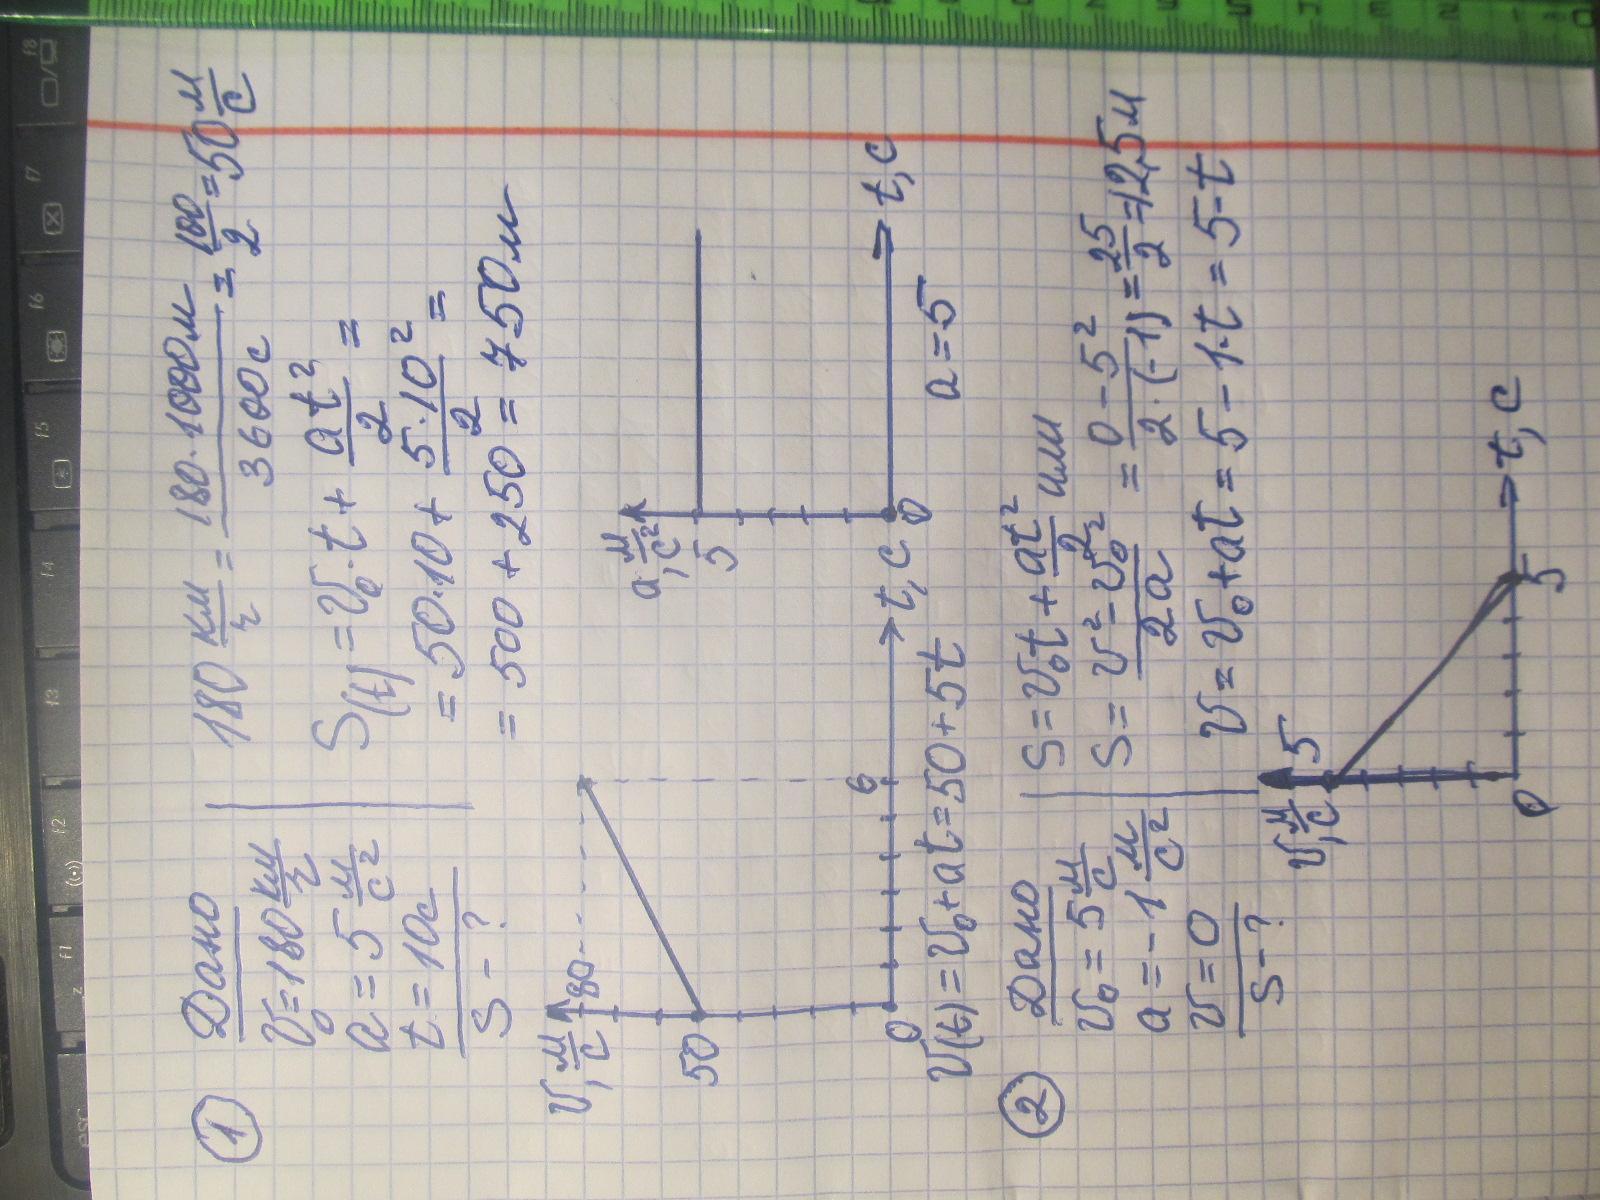 ① Дано
V₀=180 км/ч
a=5 м/с²
t=10с
S-?
180 км/ч = 180·1000м/3600с = 100/2 = 50 м/с
S(t) = V₀·t + at²/2 =
= 50·10 + 5·10²/2 =
= 500 + 250 = 750 м
V, м/с
80
50
0
6
t, c
V(t) = V₀ + at = 50 + 5t
a, м/с²
5
0
t, c
a=5
② Дано
V₀=5 м/с
a=-1 м/с²
V=0
S-?
S = V₀t + at²/2 или
S = V²-V₀²/2a = 0-5²/2·(-1) = 25/2 = 12,5м
V = V₀ + at = 5 - 1·t = 5-t
V, м/с
5
0
5
t, c
esc
f1
f2
f3
f4
f5
f6
f7
f8